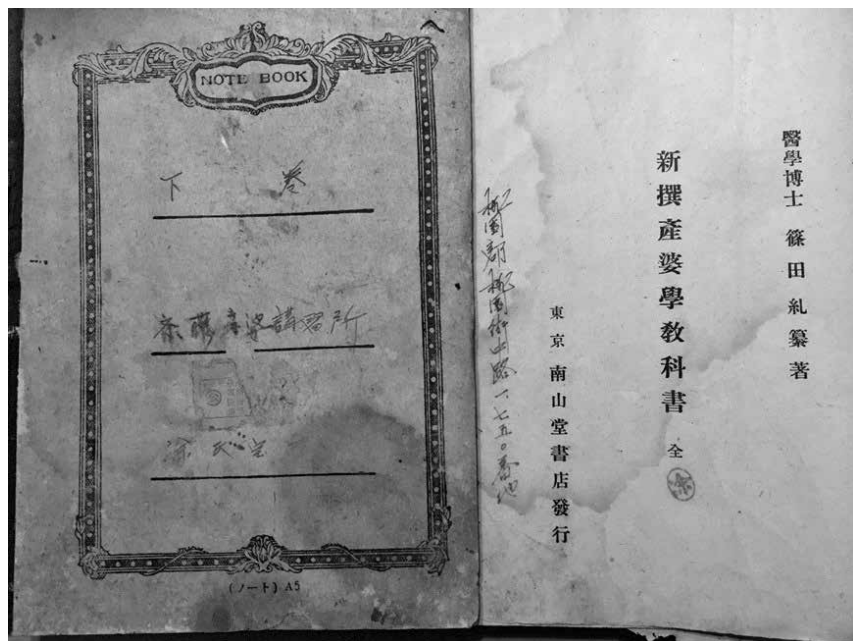 NOTE BOOK
下 卷
齋藤產婆講習所
(ノート) A5
醫學博士 篠田糺纂著
新撰產婆學敎科書 全
東京 南山堂書店發行
桃園郡桃園街山路一七五〇番地